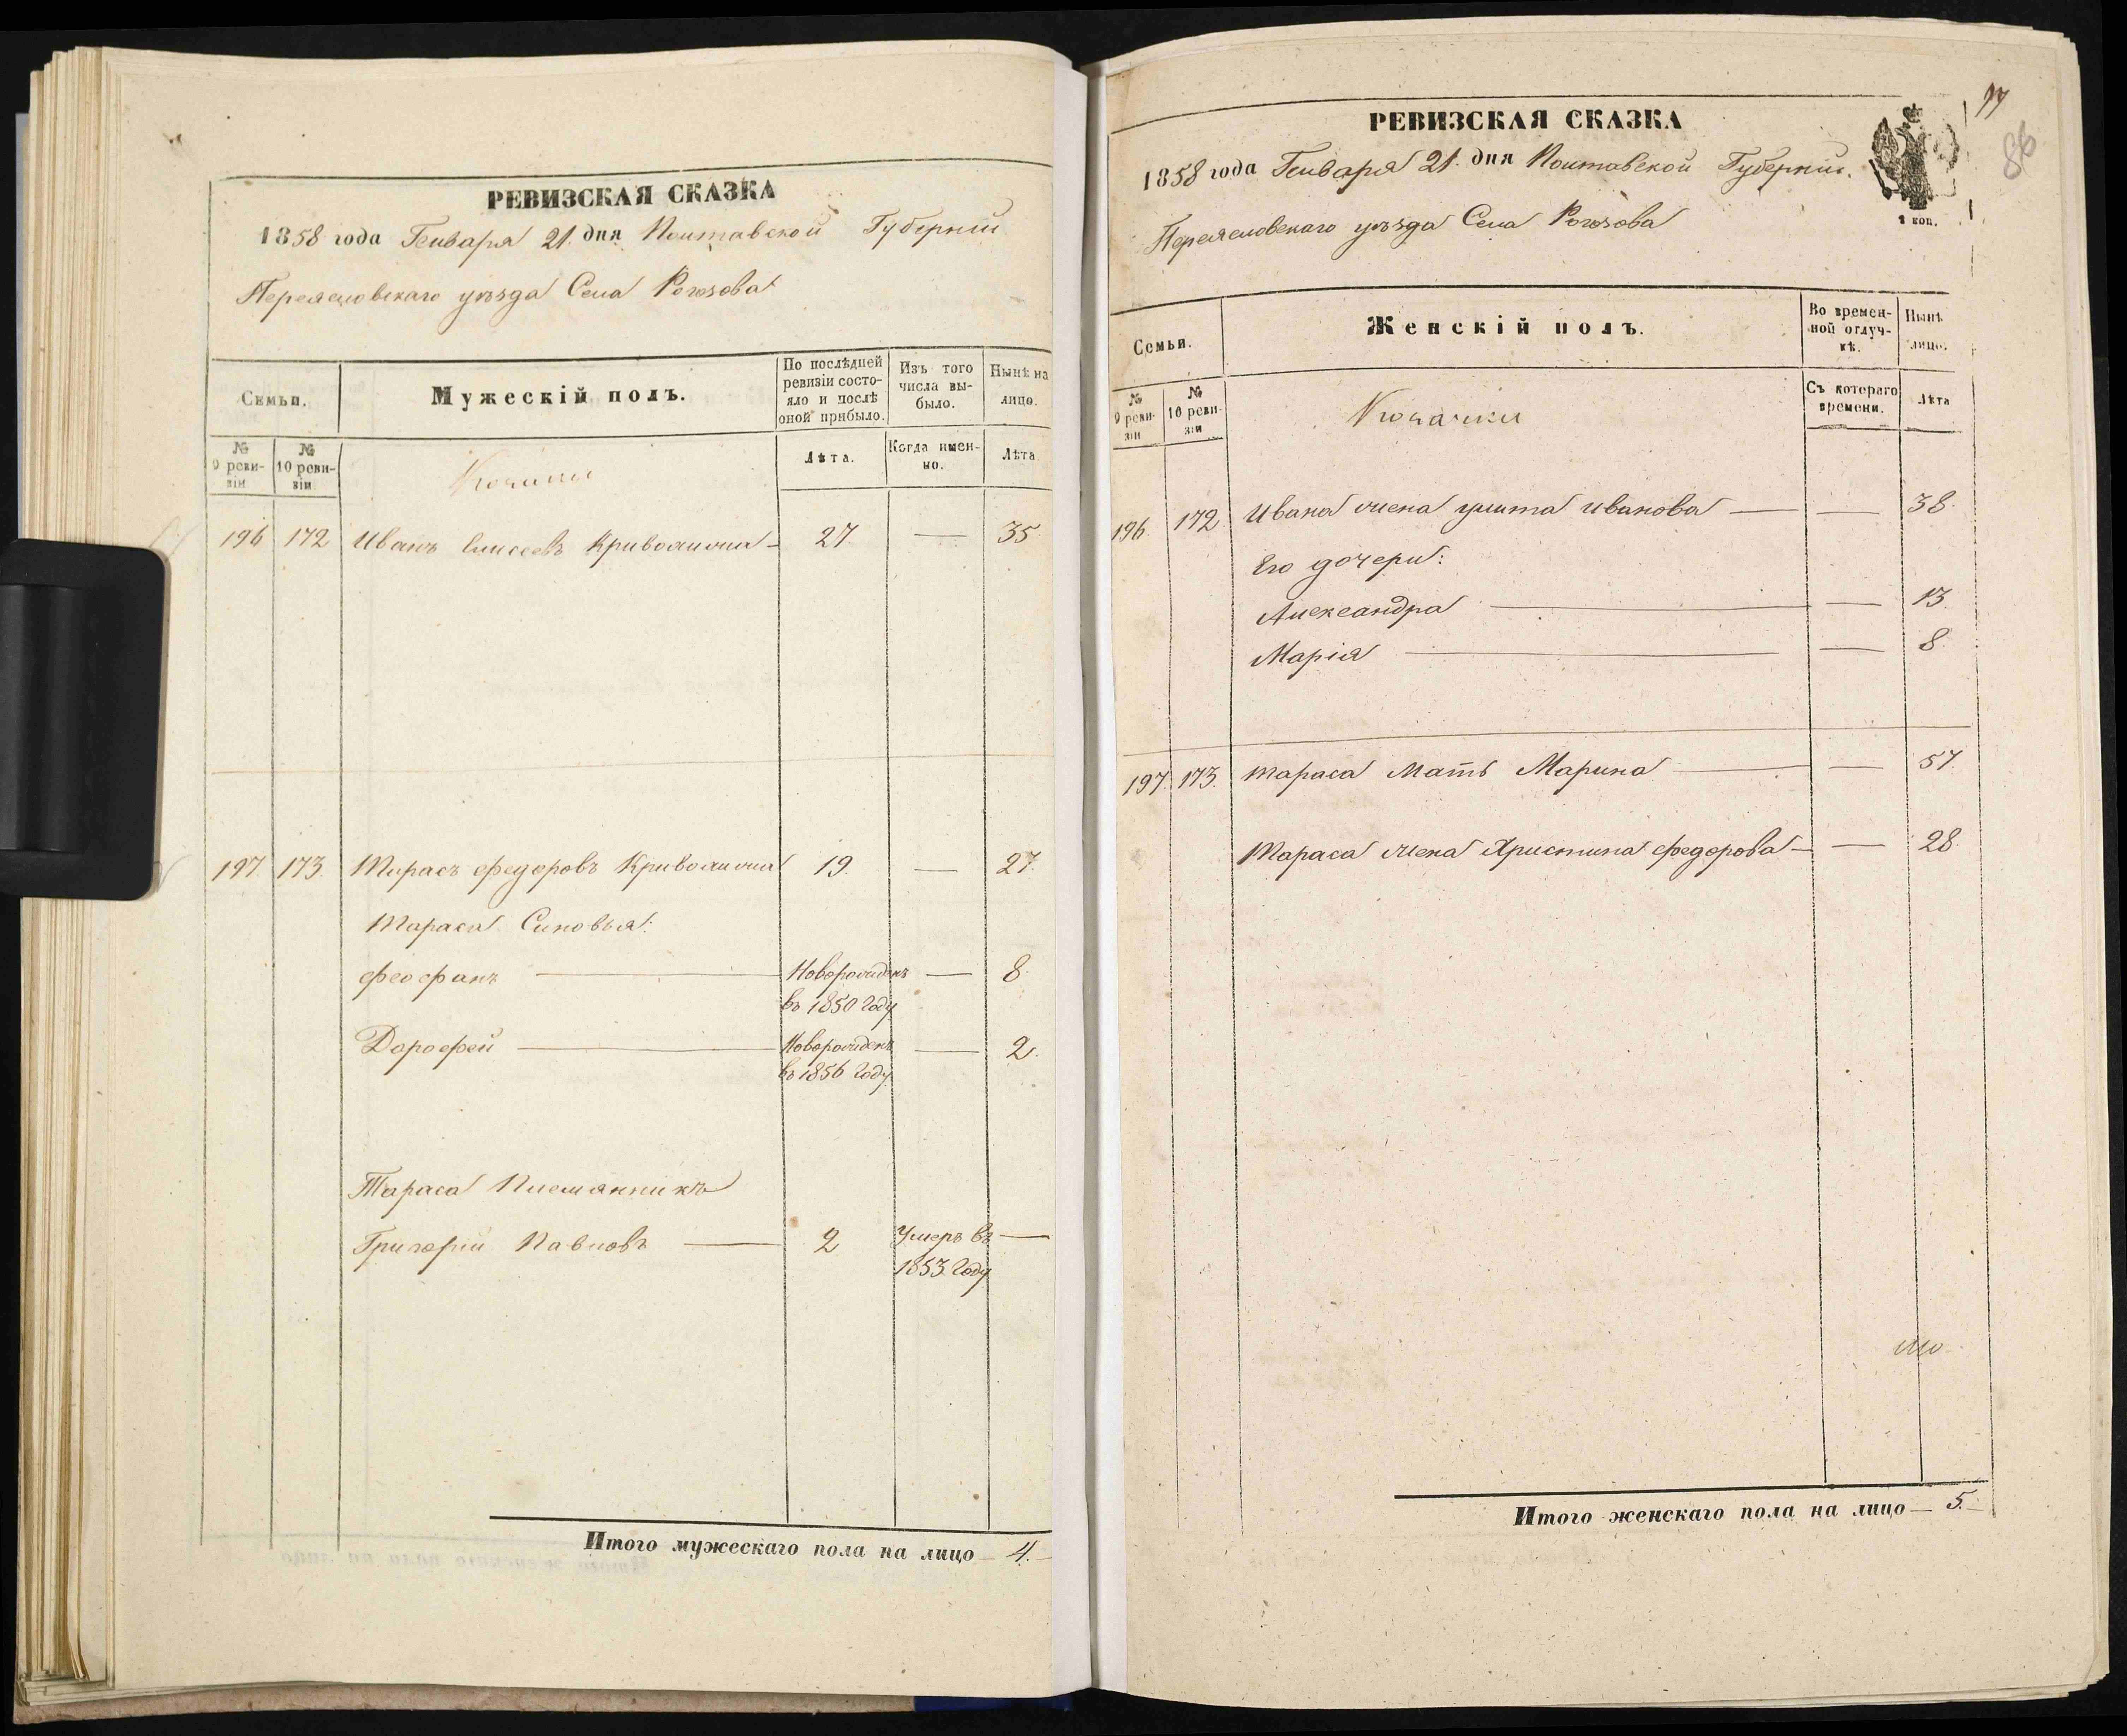 РЕВИЗСКАЯ СКАЗКА
1858 года Генваря 21. дня Полтавской Губернии
Переяславскаго уѣзда Села Рогозова
Семьи.
Мужескій полъ.
По послѣдней ревизіи состояло и послѣ оной прибыло.
Изъ того числа выбыло.
Нынѣ на лицо.
№ 9 ревизіи
№ 10 ревизіи.
Козаки
Лѣта.
Когда именно.
Лѣта
196 172 Иванъ Елисеевъ Криволапъ — 27 — 35
197. 173. Тарасъ Федоровъ 19. — 27.
Тараса Сыновья:
Феофанъ — Новорожденъ — 8.
въ 1850 году
Дорофей — Новорожденъ — 2.
въ 1856 году
Тараса Племянникъ
Григорий Павловъ — 2 Умеръ въ —
1853 году
Итого мужескаго пола на лицо — 4. —
77
86
РЕВИЗСКАЯ СКАЗКА
1858 года Генваря 21. дня Полтавской Губернии.
Переяславскаго уѣзда Села Рогозова
2 коп.
Семьи.
Женскій полъ.
Во временной отлучкѣ.
Нынѣ лицо.
№ 9 ревизіи
№ 10 ревизіи
Козачки
Съ котораго времени.
Лѣта
196. 172 Ивана жена Иванова — — 38.
Его дочери:
Александра — — 13.
Марія — — 8
197. 173. Тараса Мать Марина — — 57.
Тараса жена Христина Федорова — — 28.
Итого женскаго пола на лицо — 5. —